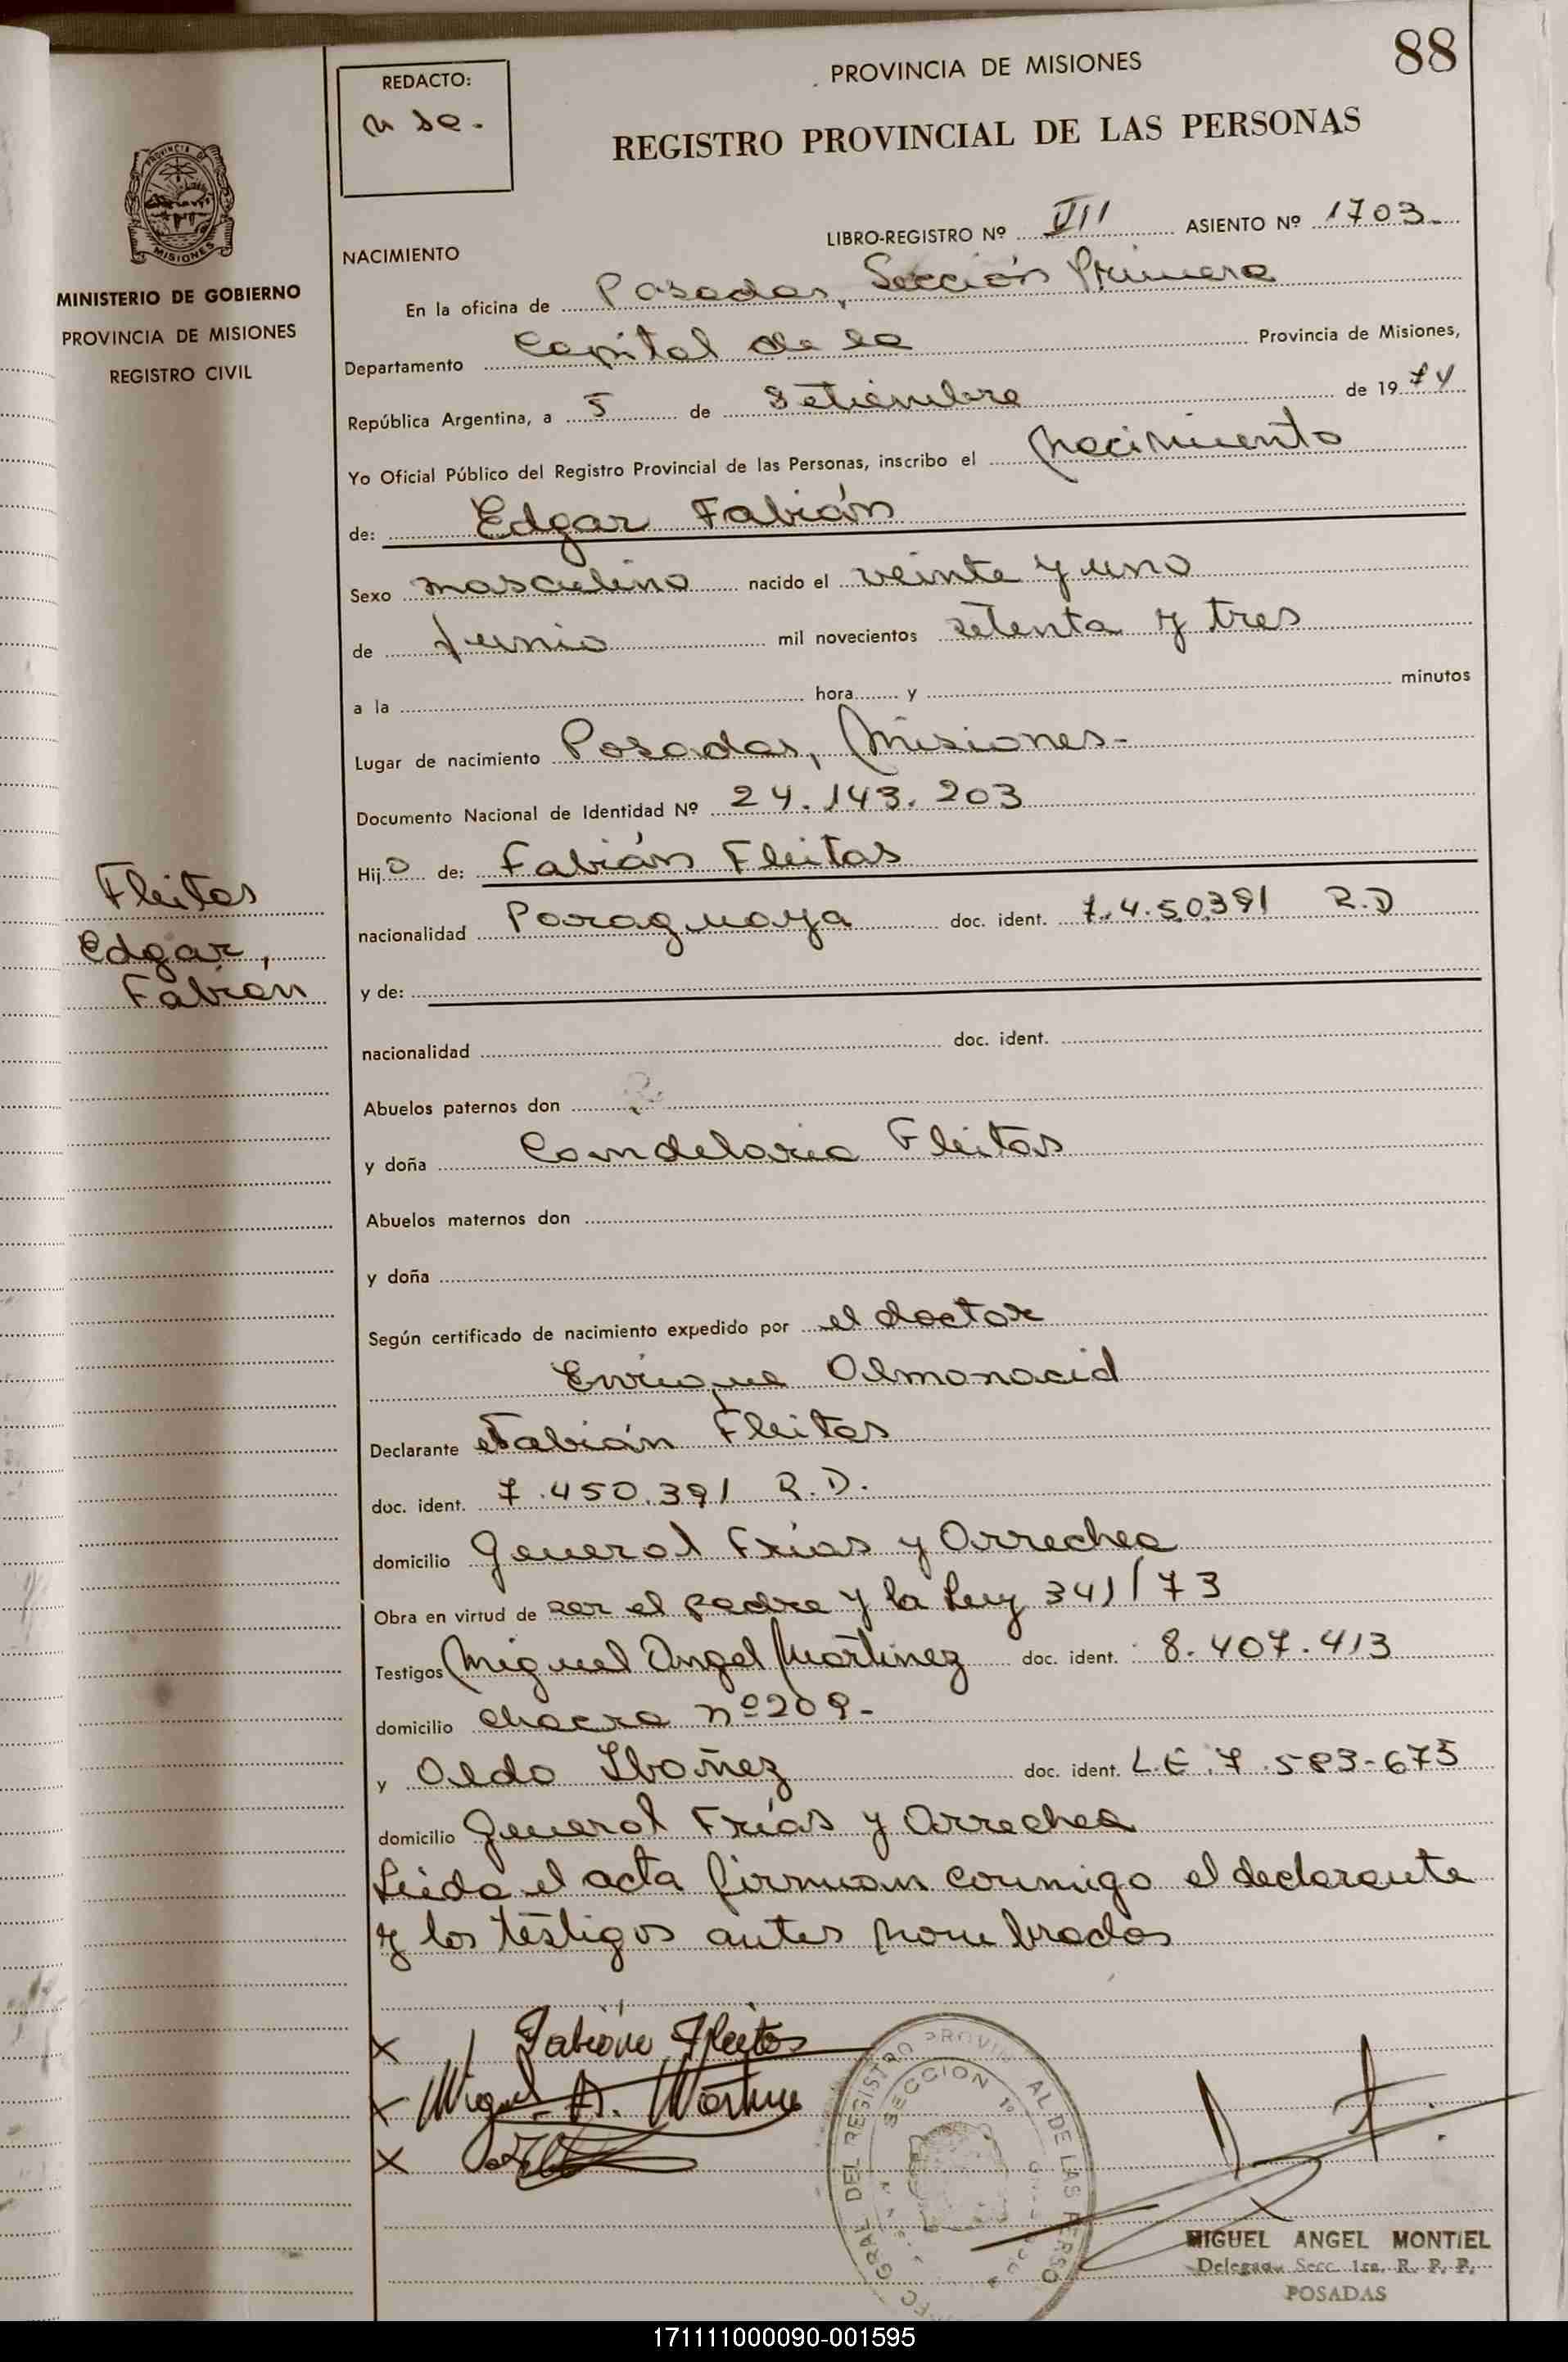 88
PROVINCIA DE MISIONES
REGISTRO PROVINCIAL DE LAS PERSONAS
REDACTO:
PROVINCIA DE
MISIONES
MINISTERIO DE GOBIERNO
PROVINCIA DE MISIONES
REGISTRO CIVIL
Fleitas
Edgar,
Fabián
LIBRO-REGISTRO Nº VII ASIENTO Nº 1703
NACIMIENTO
En la oficina de Posadas, Sección Primera
Departamento Capital de la Provincia de Misiones,
República Argentina, a 5 de Setiembre de 1974
Yo Oficial Público del Registro Provincial de las Personas, inscribo el nacimiento
de: Edgar Fabián
Sexo masculino nacido el veinte y uno
de Junio mil novecientos setenta y tres
a la hora y minutos
Lugar de nacimiento Posadas, Misiones-
Documento Nacional de Identidad Nº 24.143.203
Hijo de: Fabián Fleitas
nacionalidad Paraguaya doc. ident. 7.450391 R.D
y de:
nacionalidad doc. ident.
Abuelos paternos don
y doña Candelaria Fleitas
Abuelos maternos don
y doña
Según certificado de nacimiento expedido por el doctor
Enrique Almonacid
Declarante Fabián Fleitas
doc. ident. 7.450.391 R.D.
domicilio General Frías y Arrechea
Obra en virtud de ser el padre y la Ley 341/73
Testigos Miguel Angel Martinez doc. ident. 8.407.413
domicilio chacra nº209-
y Aldo Ibañez doc. ident. L.E.7.583-675
domicilio General Frías y Arrechea
Leída el acta firman conmigo el declarante
y los testigos antes nombrados
X Fabián Fleitas
X Miguel A. Martinez
X
SECCION 1º
MIGUEL ANGEL MONTIEL
Delegado Secc. 1ra. R. P. P.
POSADAS
171111000090-001595